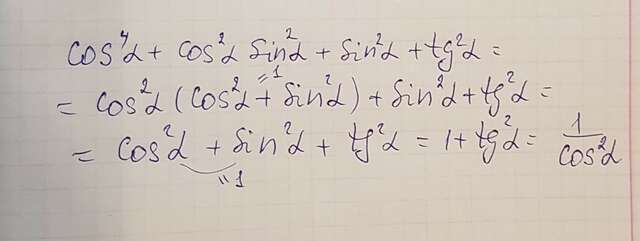 cos⁴α + cos²α sin²α + sin²α + tg²α =
= cos²α (cos²α + sin²α) + sin²α + tg²α =
=1
= cos²α + sin²α + tg²α = 1 + tg²α = 1/cos²α
"1